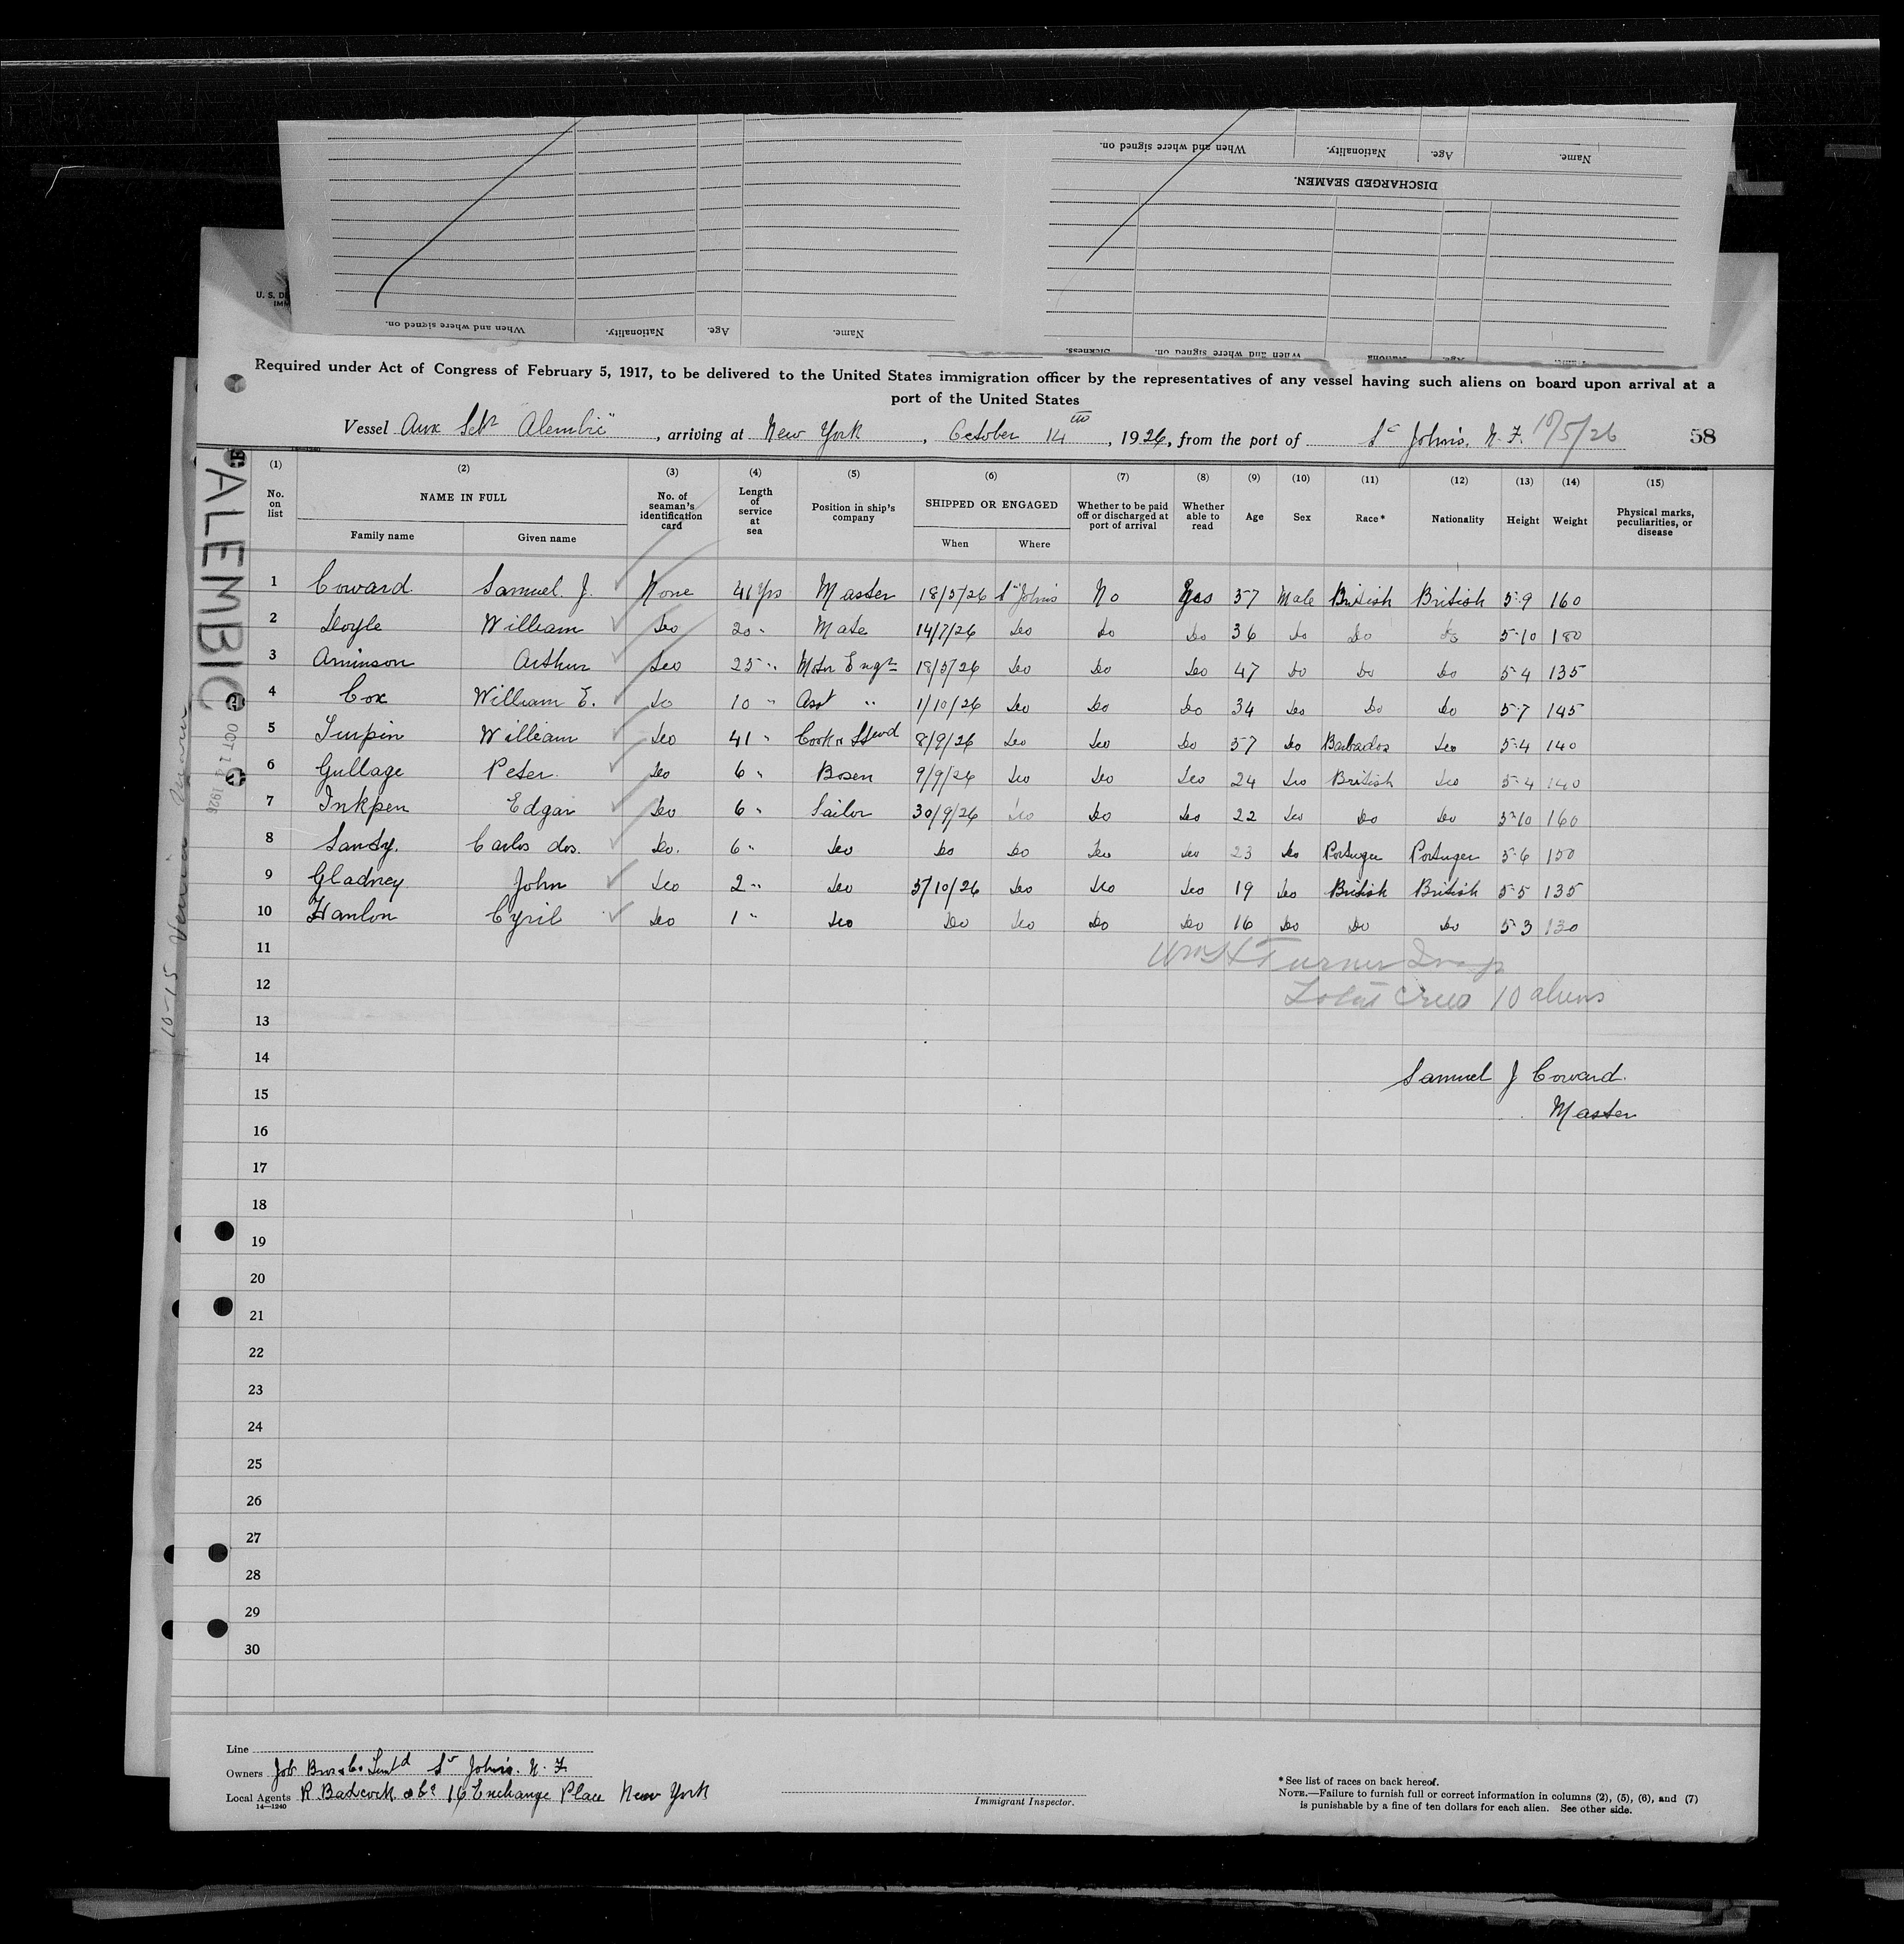 When and where signed on. Nationality. Age. Name.
DISCHARGED SEAMEN.
When and where signed on. Nationality. Age. Name.
Sickness. When and where signed on.
U. S. D
IMM
Required under Act of Congress of February 5, 1917, to be delivered to the United States immigration officer by the representatives of any vessel having such aliens on board upon arrival at a
port of the United States
Vessel Aux Schr "Alembic", arriving at New York, October 14th, 1926, from the port of St John's, N. F. 10/5/26 58
ALEMBIC
OCT 14 1926
10-15
(1) (2) (3) (4) (5) (6) (7) (8) (9) (10) (11) (12) (13) (14) (15)
No. on list NAME IN FULL No. of seaman's identification card Length of service at sea Position in ship's company SHIPPED OR ENGAGED Whether to be paid off or discharged at port of arrival Whether able to read Age Sex Race* Nationality Height Weight Physical marks, peculiarities, or disease
Family name Given name When Where
1 Coward Samuel J. None 41 Yrs Master 18/5/26 St John's No Yes 57 Male British British 5-9 160
2 Doyle William Do 20 " Mate 14/7/26 Do Do Do 36 Do Do Do 5-10 180
3 Aminson Arthur Do 25 " Motor Engr 18/5/26 Do Do Do 47 Do Do Do 5-4 135
4 Cox William E. Do 10 " Asst " 1/10/26 Do Do Do 34 Do Do Do 5-7 145
5 Turpin William Do 41 " Cook & Stewd 8/9/26 Do Do Do 57 Do Barbados Do 5-4 140
6 Gullage Peter. Do 6 " Bosen 9/9/26 Do Do Do 24 Do British Do 5-4 140
7 Inkpen Edgar Do 6 " Sailor 30/9/26 Do Do Do 22 Do Do Do 5-10 160
8 Sandy. Carlos dos. Do. 6 " Do Do Do Do Do 23 Do Portuger Portuger 5-6 150
9 Gladney John Do 2 " Do 5/10/26 Do Do Do 19 Do British British 5-5 135
10 Hanlon Cyril Do 1 " Do Do Do Do Do 16 Do Do Do 5-3 130
11 Wm H Turner Insp
12 Total Crew 10 aliens
13
14 Samuel J Coward.
15 Master
16
17
18
19
20
21
22
23
24
25
26
27
28
29
30
Line
Owners Job Bros & Co Limtd St John's. N. F.
Local Agents R. Badcock & Co 16 Exchange Place New York
14—1240
Immigrant Inspector.
*See list of races on back hereof.
NOTE.—Failure to furnish full or correct information in columns (2), (5), (6), and (7)
is punishable by a fine of ten dollars for each alien. See other side.